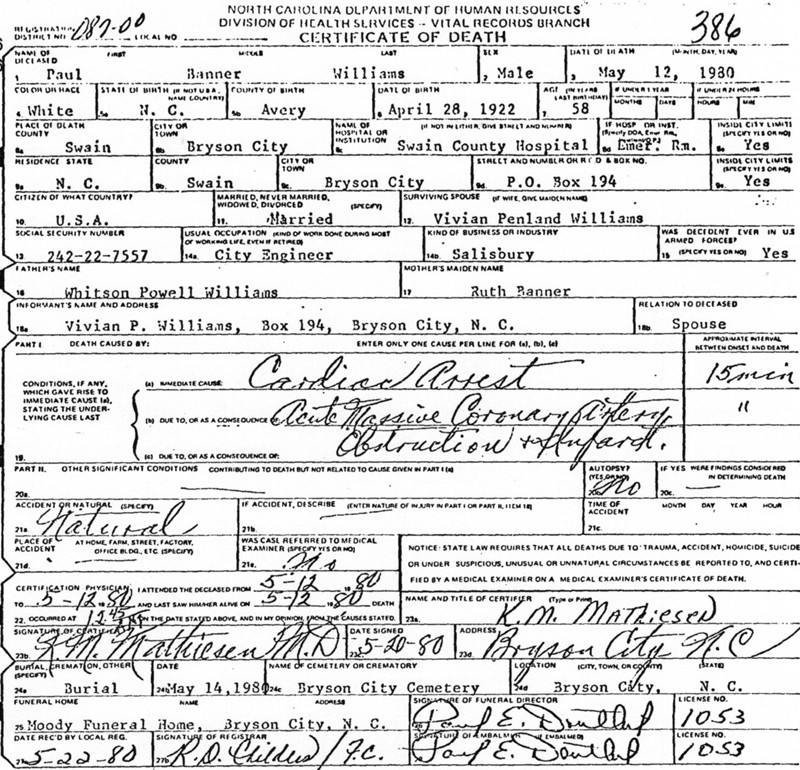 NORTH CAROLINA DEPARTMENT OF HUMAN RESOURCES
DIVISION OF HEALTH SERVICES - VITAL RECORDS BRANCH
CERTIFICATE OF DEATH
386
REGISTRATION DISTRICT NO. 087-00 LOCAL NO.
NAME OF DECEASED FIRST MIDDLE LAST SEX DATE OF DEATH (MONTH, DAY, YEAR)
1 Paul Banner Williams 2 Male 3 May 12, 1980
COLOR OR RACE STATE OF BIRTH (IF NOT U.S.A. NAME COUNTRY) COUNTY OF BIRTH DATE OF BIRTH AGE (IN YEARS LAST BIRTHDAY) IF UNDER 1 YEAR MONTHS DAYS IF UNDER 24 HOURS HOURS MIN
4 White 5a N. C. 5b Avery 6 April 28, 1922 7 58
PLACE OF DEATH COUNTY CITY OR TOWN NAME OF HOSPITAL OR INSTITUTION (IF NOT IN EITHER, GIVE STREET AND NUMBER) IF HOSP OR INST. INSIDE CITY LIMITS (SPECIFY YES OR NO)
8a Swain 8b Bryson City 8c Swain County Hospital Emer. Rm. 8e Yes
RESIDENCE STATE COUNTY CITY OR TOWN STREET AND NUMBER OR R F D & BOX NO. INSIDE CITY LIMITS (SPECIFY YES OR NO)
9a N. C. 9b Swain 9c Bryson City 9d P.O. Box 194 9e Yes
CITIZEN OF WHAT COUNTRY? MARRIED, NEVER MARRIED, WIDOWED, DIVORCED (SPECIFY) SURVIVING SPOUSE (IF WIFE, GIVE MAIDEN NAME)
10. U.S.A. 11. Married 12. Vivian Penland Williams
SOCIAL SECURITY NUMBER USUAL OCCUPATION (KIND OF WORK DONE DURING MOST OF WORKING LIFE, EVEN IF RETIRED) KIND OF BUSINESS OR INDUSTRY WAS DECEDENT EVER IN U.S ARMED FORCES? (SPECIFY YES OR NO)
13 242-22-7557 14a City Engineer 14b Salisbury 15 Yes
FATHER'S NAME MOTHER'S MAIDEN NAME
16 Whitson Powell Williams 17 Ruth Banner
INFORMANT'S NAME AND ADDRESS RELATION TO DECEASED
18a Vivian P. Williams, Box 194, Bryson City, N. C. 18b Spouse
PART I. DEATH CAUSED BY: ENTER ONLY ONE CAUSE PER LINE FOR (a), (b), (c) APPROXIMATE INTERVAL BETWEEN ONSET AND DEATH
CONDITIONS, IF ANY, WHICH GAVE RISE TO IMMEDIATE CAUSE (a), STATING THE UNDERLYING CAUSE LAST
(a) IMMEDIATE CAUSE: Cardiac Arrest 15 min
(b) DUE TO, OR AS A CONSEQUENCE OF: Acute Massive Coronary Artery "
Obstruction & Infarct.
19. (c) DUE TO, OR AS A CONSEQUENCE OF:
PART II. OTHER SIGNIFICANT CONDITIONS CONTRIBUTING TO DEATH BUT NOT RELATED TO CAUSE GIVEN IN PART I (a) AUTOPSY? (YES OR NO) IF YES WERE FINDINGS CONSIDERED IN DETERMINING DEATH
20a. 20b. No 20c.
ACCIDENT OR NATURAL (SPECIFY) IF ACCIDENT, DESCRIBE (ENTER NATURE OF INJURY IN PART I OR PART II, ITEM 18) TIME OF ACCIDENT MONTH DAY YEAR HOUR
21a. Natural 21b. 21c.
PLACE OF ACCIDENT AT HOME, FARM, STREET, FACTORY, OFFICE BLDG., ETC. (SPECIFY) WAS CASE REFERRED TO MEDICAL EXAMINER (SPECIFY YES OR NO)
21d. 21e. No
NOTICE: STATE LAW REQUIRES THAT ALL DEATHS DUE TO TRAUMA, ACCIDENT, HOMICIDE, SUICIDE
OR UNDER SUSPICIOUS, UNUSUAL OR UNNATURAL CIRCUMSTANCES BE REPORTED TO, AND CERTI-
FIED BY A MEDICAL EXAMINER ON A MEDICAL EXAMINER'S CERTIFICATE OF DEATH.
CERTIFICATION PHYSICIAN: I ATTENDED THE DECEASED FROM 5-12 1980
TO 5-12 1980 AND LAST SAW HIM/HER ALIVE ON 5-12 1980 DEATH
22. OCCURRED AT ON THE DATE STATED ABOVE, AND IN MY OPINION, FROM THE CAUSES STATED.
NAME AND TITLE OF CERTIFIER (Type or Print)
23a. K.M. MATHIESEN
SIGNATURE OF CERTIFIER DATE SIGNED ADDRESS
23b K.M. Mathiesen M.D 23c 5-20-80 23d. Bryson City N.C
BURIAL, CREMATION, OTHER (SPECIFY) DATE NAME OF CEMETERY OR CREMATORY LOCATION (CITY, TOWN, OR COUNTY) (STATE)
24a Burial 24b May 14, 1980 24c Bryson City Cemetery 24d Bryson City, N. C.
FUNERAL HOME NAME ADDRESS SIGNATURE OF FUNERAL DIRECTOR LICENSE NO.
25 Moody Funeral Home, Bryson City, N. C. 1053
DATE REC'D BY LOCAL REG. SIGNATURE OF REGISTRAR SIGNATURE OF EMBALMER (IF EMBALMED) LICENSE NO.
5-22-80 27b R.D. Childers / F.C. 1053